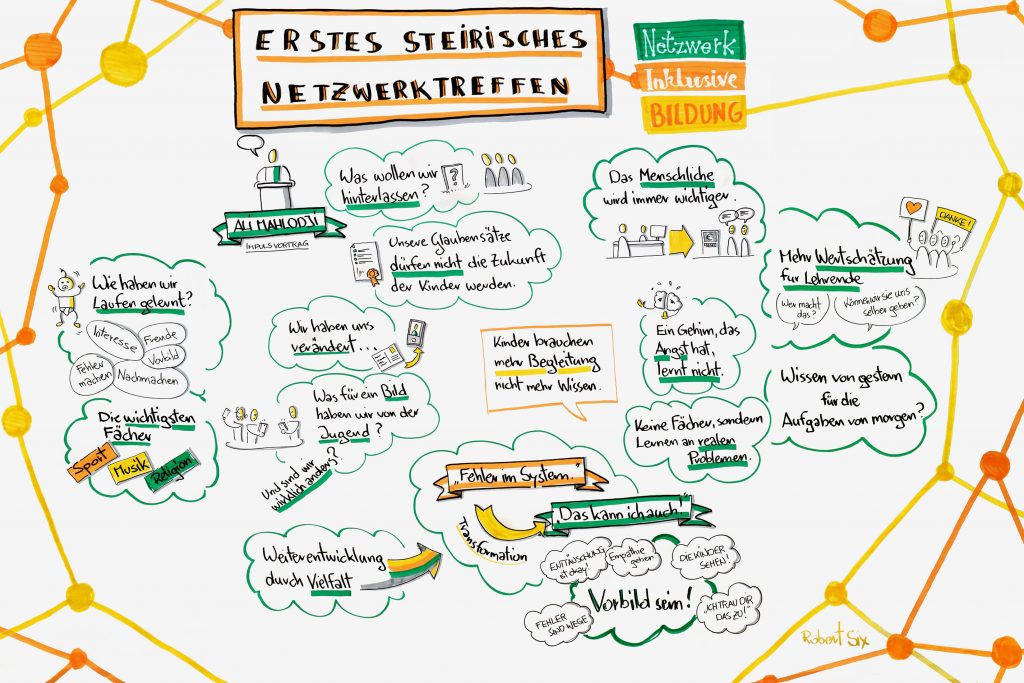 ERSTES STEIRISCHES
NETZWERKTREFFEN
Netzwerk
Inklusive
BILDUNG
ALI MAHLODJI
IMPULSVORTRAG
Was wollen wir
hinterlassen?
?
Unsere Glaubensätze
dürfen nicht die Zukunft
der Kinder werden.
Das Menschliche
wird immer wichtiger.
DANKE!
Mehr Wertschätzung
für Lehrende
Wer macht
das?
Können wir sie uns
selber geben?
Wie haben wir
Laufen gelernt?
Interesse
Freude
Vorbild
Fehler
machen
Nachmachen
Wir haben uns
verändert...
Kinder brauchen
mehr Begleitung
nicht mehr Wissen.
Ein Gehirn, das
Angst hat,
lernt nicht.
Wissen von gestern
für die
Aufgaben von morgen?
Die wichtigsten
Fächer
Sport
Musik
Religion
Was für ein Bild
haben wir von der
Jugend?
Und sind wir
wirklich anders?
Keine Fächer, sondern
Lernen an realen
Problemen.
„Fehler im System."
„Das kann ich auch!"
Transformation
Weiterentwicklung
durch Vielfalt
ENTTÄUSCHUNG
ist okay!
Empathie
geben
DIE KINDER
SEHEN!
Vorbild sein!
FEHLER
SIND WEGE
„ICH TRAU DIR
DAS ZU!"
Robert Six